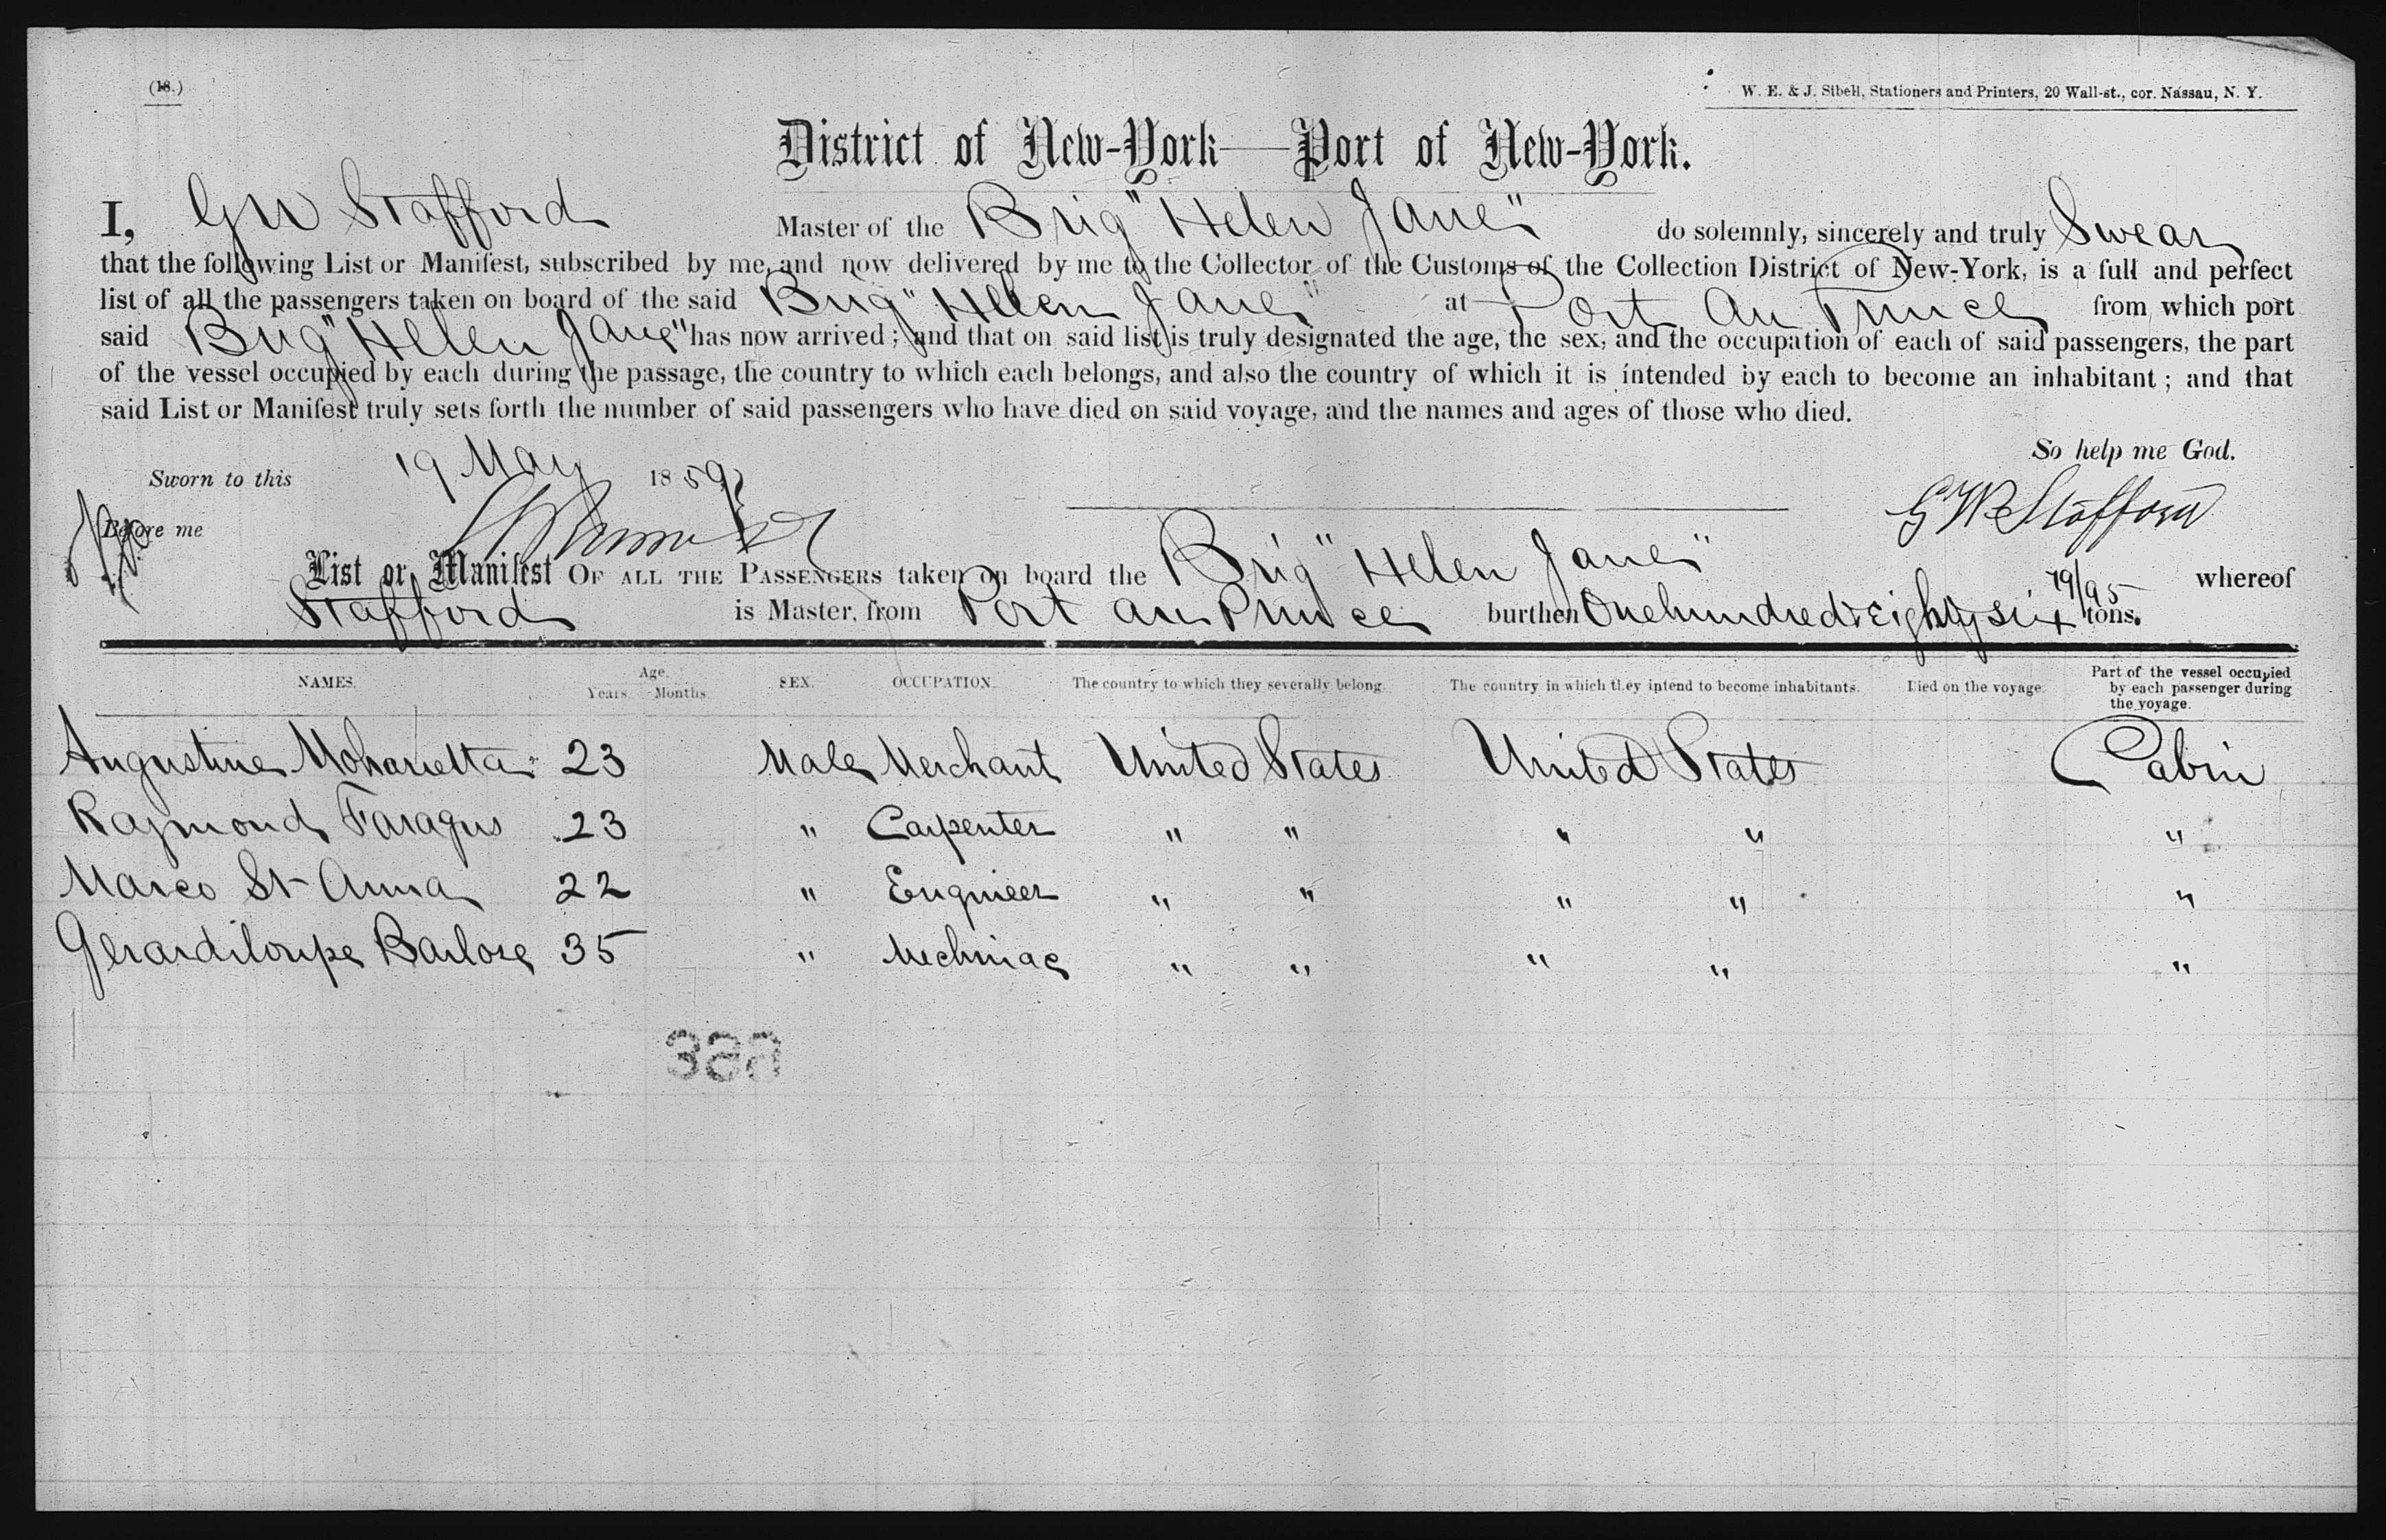 (18.)
W. E. & J. Sibell, Stationers and Printers, 20 Wall-st., cor. Nassau, N. Y.
District of New-York—Port of New-York.
I, GW Stafford Master of the Brig "Helen Jane" do solemnly, sincerely and truly Swear
that the following List or Manifest, subscribed by me, and now delivered by me to the Collector of the Customs of the Collection District of New-York, is a full and perfect
list of all the passengers taken on board of the said Brig "Helen Jane" at Port Au Prince from which port
said Brig "Helen Jane" has now arrived; and that on said list is truly designated the age, the sex, and the occupation of each of said passengers, the part
of the vessel occupied by each during the passage, the country to which each belongs, and also the country of which it is intended by each to become an inhabitant; and that
said List or Manifest truly sets forth the number of said passengers who have died on said voyage, and the names and ages of those who died.
So help me God.
Sworn to this 19 May 1859
GW Stafford
Before me
List or Manifest OF ALL THE PASSENGERS taken on board the Brig "Helen Jane" whereof
Stafford is Master, from Port au Prince burthen One hundred & Eighty six 79/95 tons.
NAMES. Age. Years. Months. SEX. OCCUPATION. The country to which they severally belong. The country in which they intend to become inhabitants. Died on the voyage. Part of the vessel occupied by each passenger during the voyage.
Augustine 23 Male Merchant United States United States Cabin
Raymond Faragus 23 " Carpenter " " " " "
Marco St Anna 22 " Engineer " " " " "
35 " " " " " "